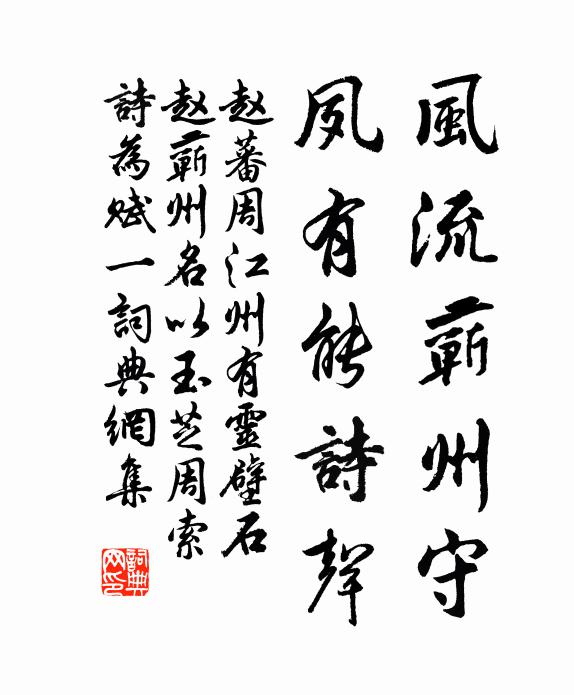 風流蘄州守
夙有能詩聲
赵蕃周江州有靈壁石
赵蘄州名以玉芝周索
詩為賦一詞典網集
詞典網印